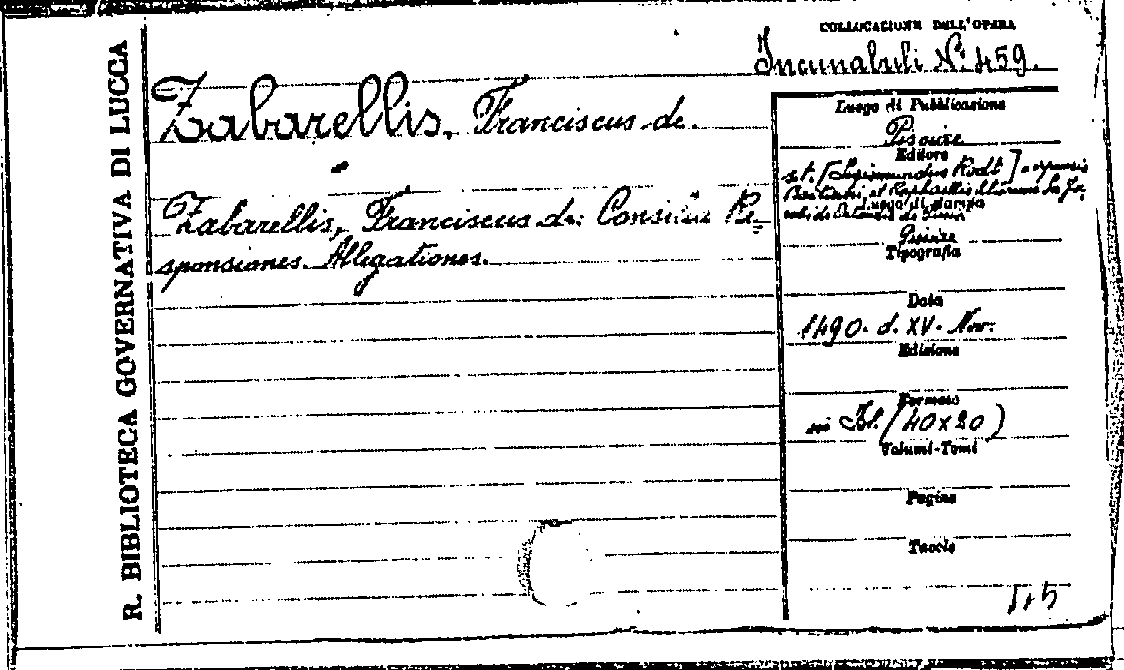 R. BIBLIOTECA GOVERNATIVA DI LUCCA
COLLOCAZIONE DELL'OPERA
Incunabuli N.º 459.
Zabarellis, Franciscus de.
Zabarellis, Franciscus de: Consilia Re=
sponsiones. Allegationes.
Luogo di Pubblicazione
Editore
et Raphaellis
Luogo di stampa
Tipografia
Data
1490. d. XV. Nov.
Edizione
Formato
in Fol. (40x20)
Volumi-Tomi
Pagine
Tavole